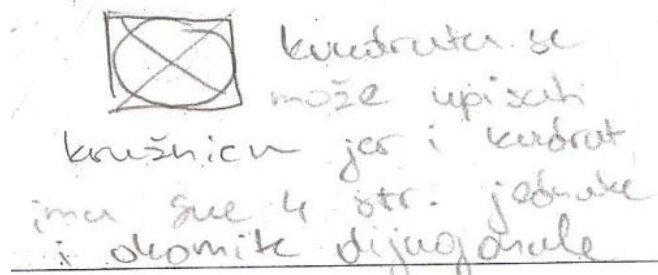 kvadratu se
može upisati
kružnicu jer i kvadrat
ima sve 4 str. jednake
i okomite dijagonale